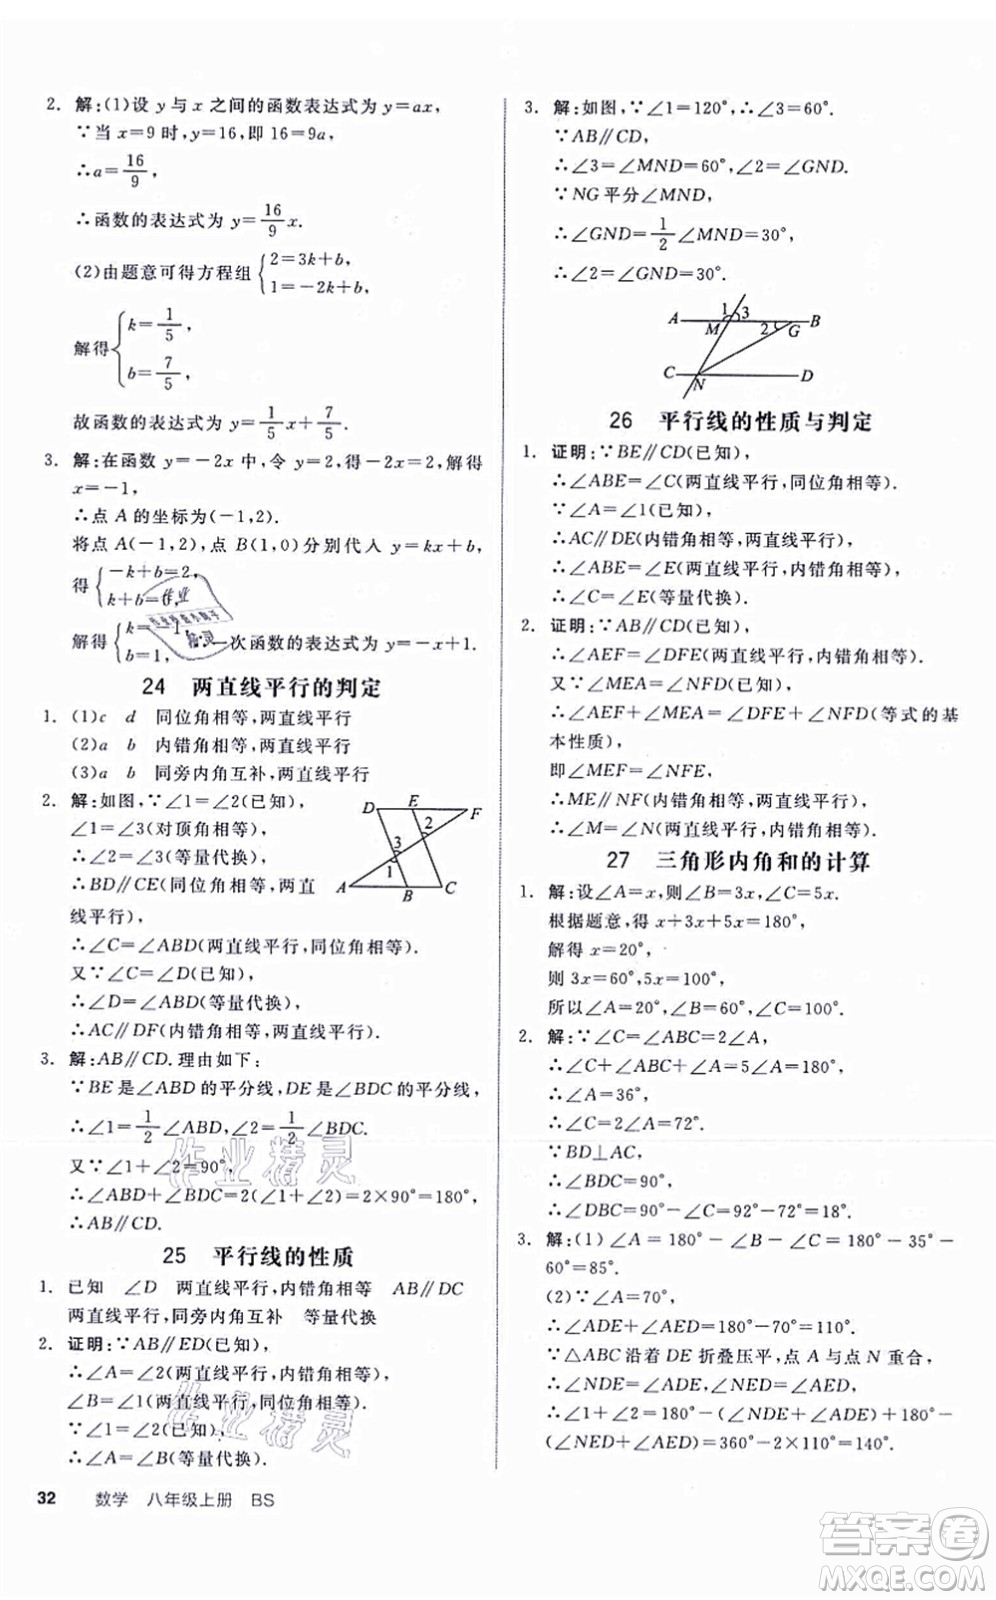 2. 解:(1)设 y 与 x 之间的函数表达式为 y=ax,
∵当 x=9 时,y=16,即 16=9a,
∴a=16/9,
∴函数的表达式为 y=16/9x.
(2)由题意可得方程组{2=3k+b, 1=-2k+b,
解得{k=1/5, b=7/5,
故函数的表达式为 y=1/5x+7/5.
3. 解:在函数 y=-2x 中,令 y=2,得-2x=2,解得
x=-1,
∴点 A 的坐标为(-1,2).
将点 A(-1,2),点 B(1,0)分别代人 y=kx+b,
得{-k+b=2, k+b=0,
解得{k=-1, b=1, 一次函数的表达式为 y=-x+1.
24 两直线平行的判定
1. (1)c d 同位角相等,两直线平行
(2)a b 内错角相等,两直线平行
(3)a b 同旁内角互补,两直线平行
2. 解:如图,∵∠1=∠2(已知),
∠1=∠3(对顶角相等),
∴∠2=∠3(等量代换),
∴BD∥CE(同位角相等,两直
线平行),
D E F
3 2
1
A B C
∴∠C=∠ABD(两直线平行,同位角相等).
又∵∠C=∠D(已知),
∴∠D=∠ABD(等量代换),
∴AC∥DF(内错角相等,两直线平行).
3. 解:AB∥CD.理由如下:
∵BE是∠ABD的平分线,DE是∠BDC的平分线,
∴∠1=1/2∠ABD,∠2=1/2∠BDC.
又∵∠1+∠2=90°,
∴∠ABD+∠BDC=2(∠1+∠2)=2×90°=180°,
∴AB∥CD.
25 平行线的性质
1. 已知 ∠D 两直线平行,内错角相等 AB∥DC
两直线平行,同旁内角互补 等量代换
2. 证明:∵AB∥ED(已知),
∴∠A=∠2(两直线平行,内错角相等),
∠B=∠1(两直线平行,同位角相等).
∵∠1=∠2(已知),
∴∠A=∠B(等量代换).
32 数学 八年级上册 BS
3. 解:如图,∵∠1=120°,∴∠3=60°.
∵AB∥CD,
∴∠3=∠MND=60°,∠2=∠GND.
∵NG平分∠MND,
∴∠GND=1/2∠MND=30°,
∴∠2=∠GND=30°.
A 1 3 B
M 2 G
C N D
26 平行线的性质与判定
1. 证明:∵BE∥CD(已知),
∴∠ABE=∠C(两直线平行,同位角相等).
∵∠A=∠1(已知),
∴AC∥DE(内错角相等,两直线平行),
∴∠ABE=∠E(两直线平行,内错角相等),
∴∠C=∠E(等量代换).
2. 证明:∵AB∥CD(已知),
∴∠AEF=∠DFE(两直线平行,内错角相等).
又∵∠MEA=∠NFD(已知),
∴∠AEF+∠MEA=∠DFE+∠NFD(等式的基
本性质),
即∠MEF=∠NFE,
∴ME∥NF(内错角相等,两直线平行),
∴∠M=∠N(两直线平行,内错角相等).
27 三角形内角和的计算
1. 解:设∠A=x,则∠B=3x,∠C=5x.
根据题意,得 x+3x+5x=180°,
解得 x=20°,
则 3x=60°,5x=100°,
所以∠A=20°,∠B=60°,∠C=100°.
2. 解:∵∠C=∠ABC=2∠A,
∴∠C+∠ABC+∠A=5∠A=180°,
∴∠A=36°,
∴∠C=2∠A=72°.
∵BD⊥AC,
∴∠BDC=90°,
∴∠DBC=90°-∠C=90°-72°=18°.
3. 解:(1)∠A=180°-∠B-∠C=180°-35°-
60°=85°.
(2)∵∠A=70°,
∴∠ADE+∠AED=180°-70°=110°.
∵△ABC沿着DE折叠压平,点A与点N重合,
∴∠ADE=∠NDE,∠NED=∠AED,
∴∠1+∠2=180°-(∠NDE+∠ADE)+180°-
(∠NED+∠AED)=360°-2×110°=140°.
作业精灵
作业精灵
答案卷
MXQE.COM